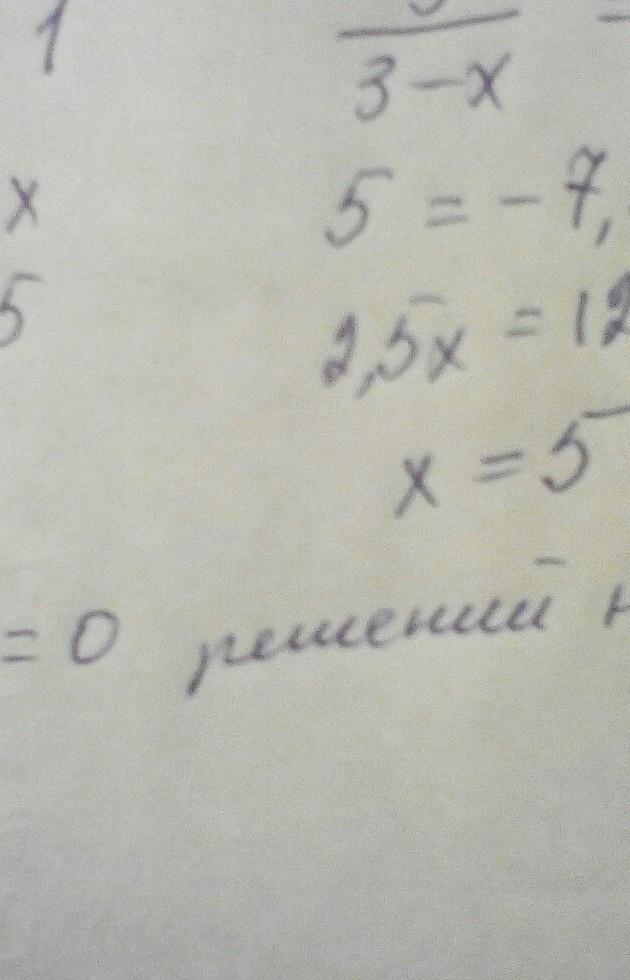 1
3-x
x 5 = -7,
5 2,5x = 12
x = 5
= 0 решений